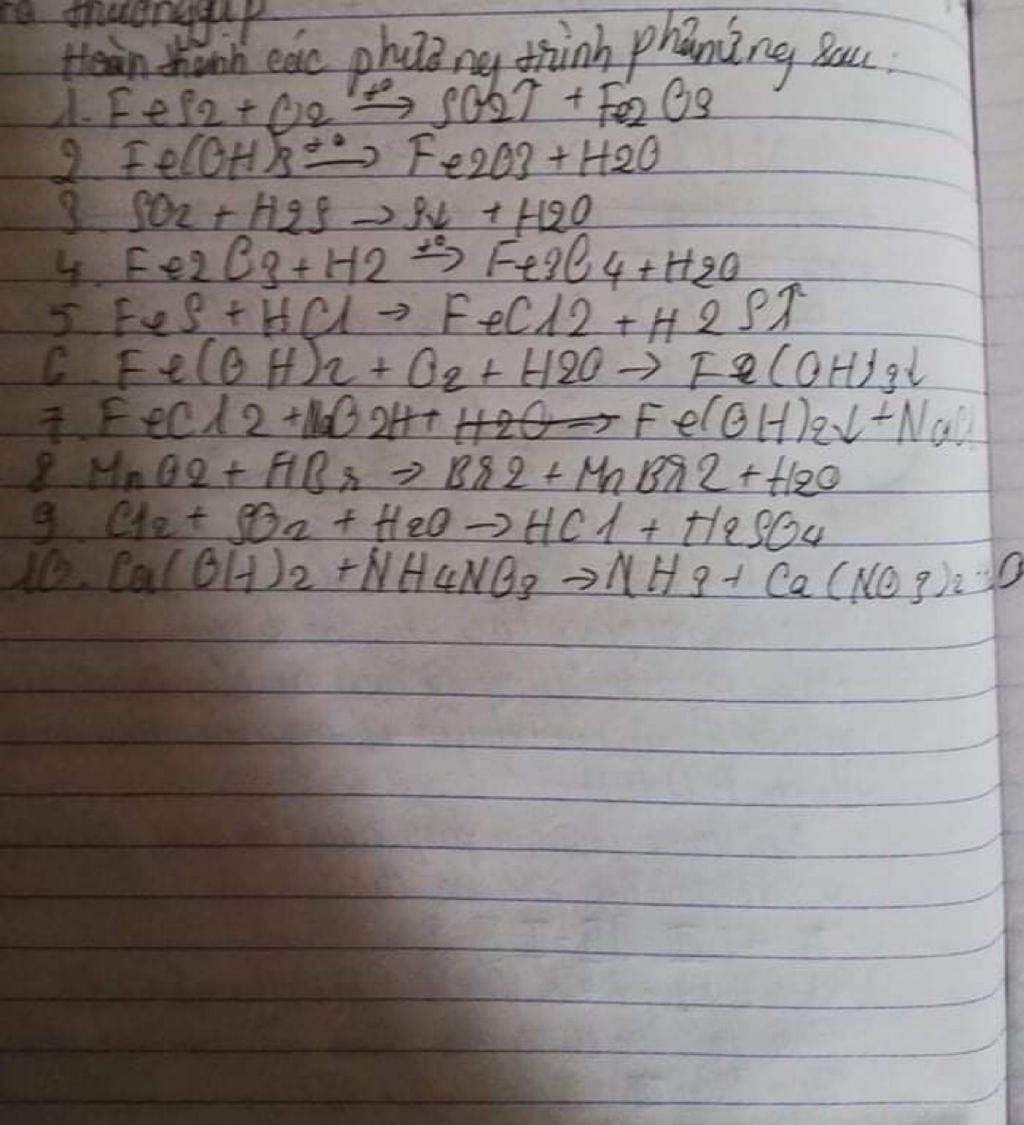 thường gặp
Hoàn thành các phương trình phản ứng sau:
1. FeS2 + O2 t°→ SO2↑ + Fe2O3
2 Fe(OH)3 t°→ Fe2O3 + H2O
3 SO2 + H2S → S↓ + H2O
4. Fe2O3 + H2 t°→ Fe3O4 + H2O
5. FeS + HCl → FeCl2 + H2S↑
6. Fe(OH)2 + O2 + H2O → Fe(OH)3↓
7. FeCl2 + H2O → Fe(OH)2↓ +
8 MnO2 + HBr → Br2 + MnBr2 + H2O
9. Cl2 + SO2 + H2O → HCl + H2SO4
10. Ca(OH)2 + NH4NO3 → NH3 + Ca(NO3)2